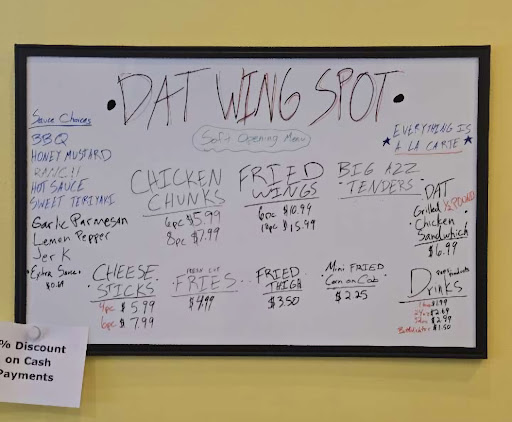 • DAT WING SPOT •
Soft Opening Menu
Sauce Choices
BBQ
HONEY MUSTARD
RANCH
HOT SAUCE
SWEET TERIYAKI
Garlic Parmesan
Lemon Pepper
Jerk
• Extra Sauce •
$0.69
EVERYTHING IS
A LA CARTE
CHICKEN
CHUNKS
6pc $5.99
8pc $7.99
FRIED
WINGS
6pc $10.99
12pc $15.99
BIG AZZ
TENDERS
• DAT
Grilled 1/2 POUND
• Chicken
Sandwhich
$6.99
CHEESE
STICKS
4pc $5.99
6pc $7.99
FRESH CUT
FRIES
$4.99
FRIED
THIGH
$3.50
• Mini FRIED
Corn on Cob
$2.25
DRINKS
$1.99
$2.69
$2.99
$1.50
% Discount
on Cash
Payments